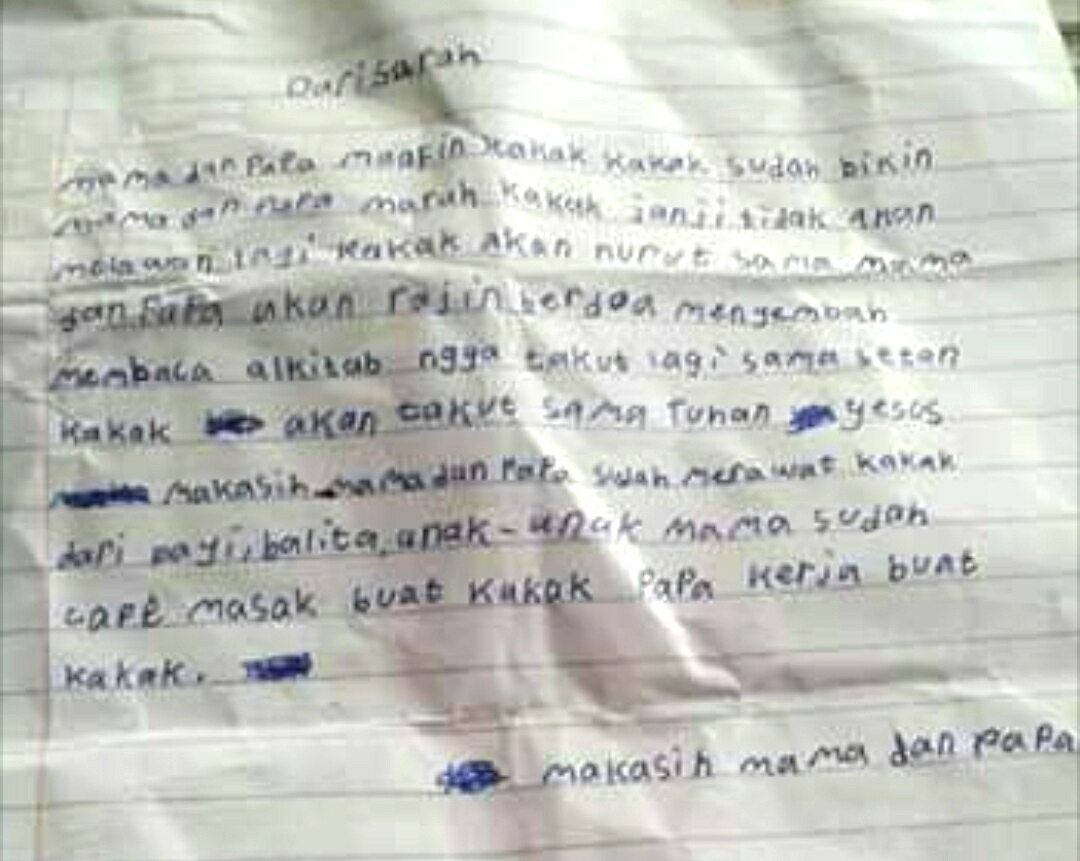 Dari sarah
mama dan Papa maafin kakak kakak sudah bikin
mama dan papa marah kakak janji tidak akan
melawan lagi kakak akan nurut sama mama
dan Papa akan rajin berdoa menyembah
membaca alkitab ngga takut lagi sama setan
kakak akan takut sama Tuhan yesus
makasih mama dan Papa sudah merawat kakak
dari bayi, balita, anak-anak mama sudah
cape masak buat kakak PaPa kerja buat
kakak.
makasih mama dan papa